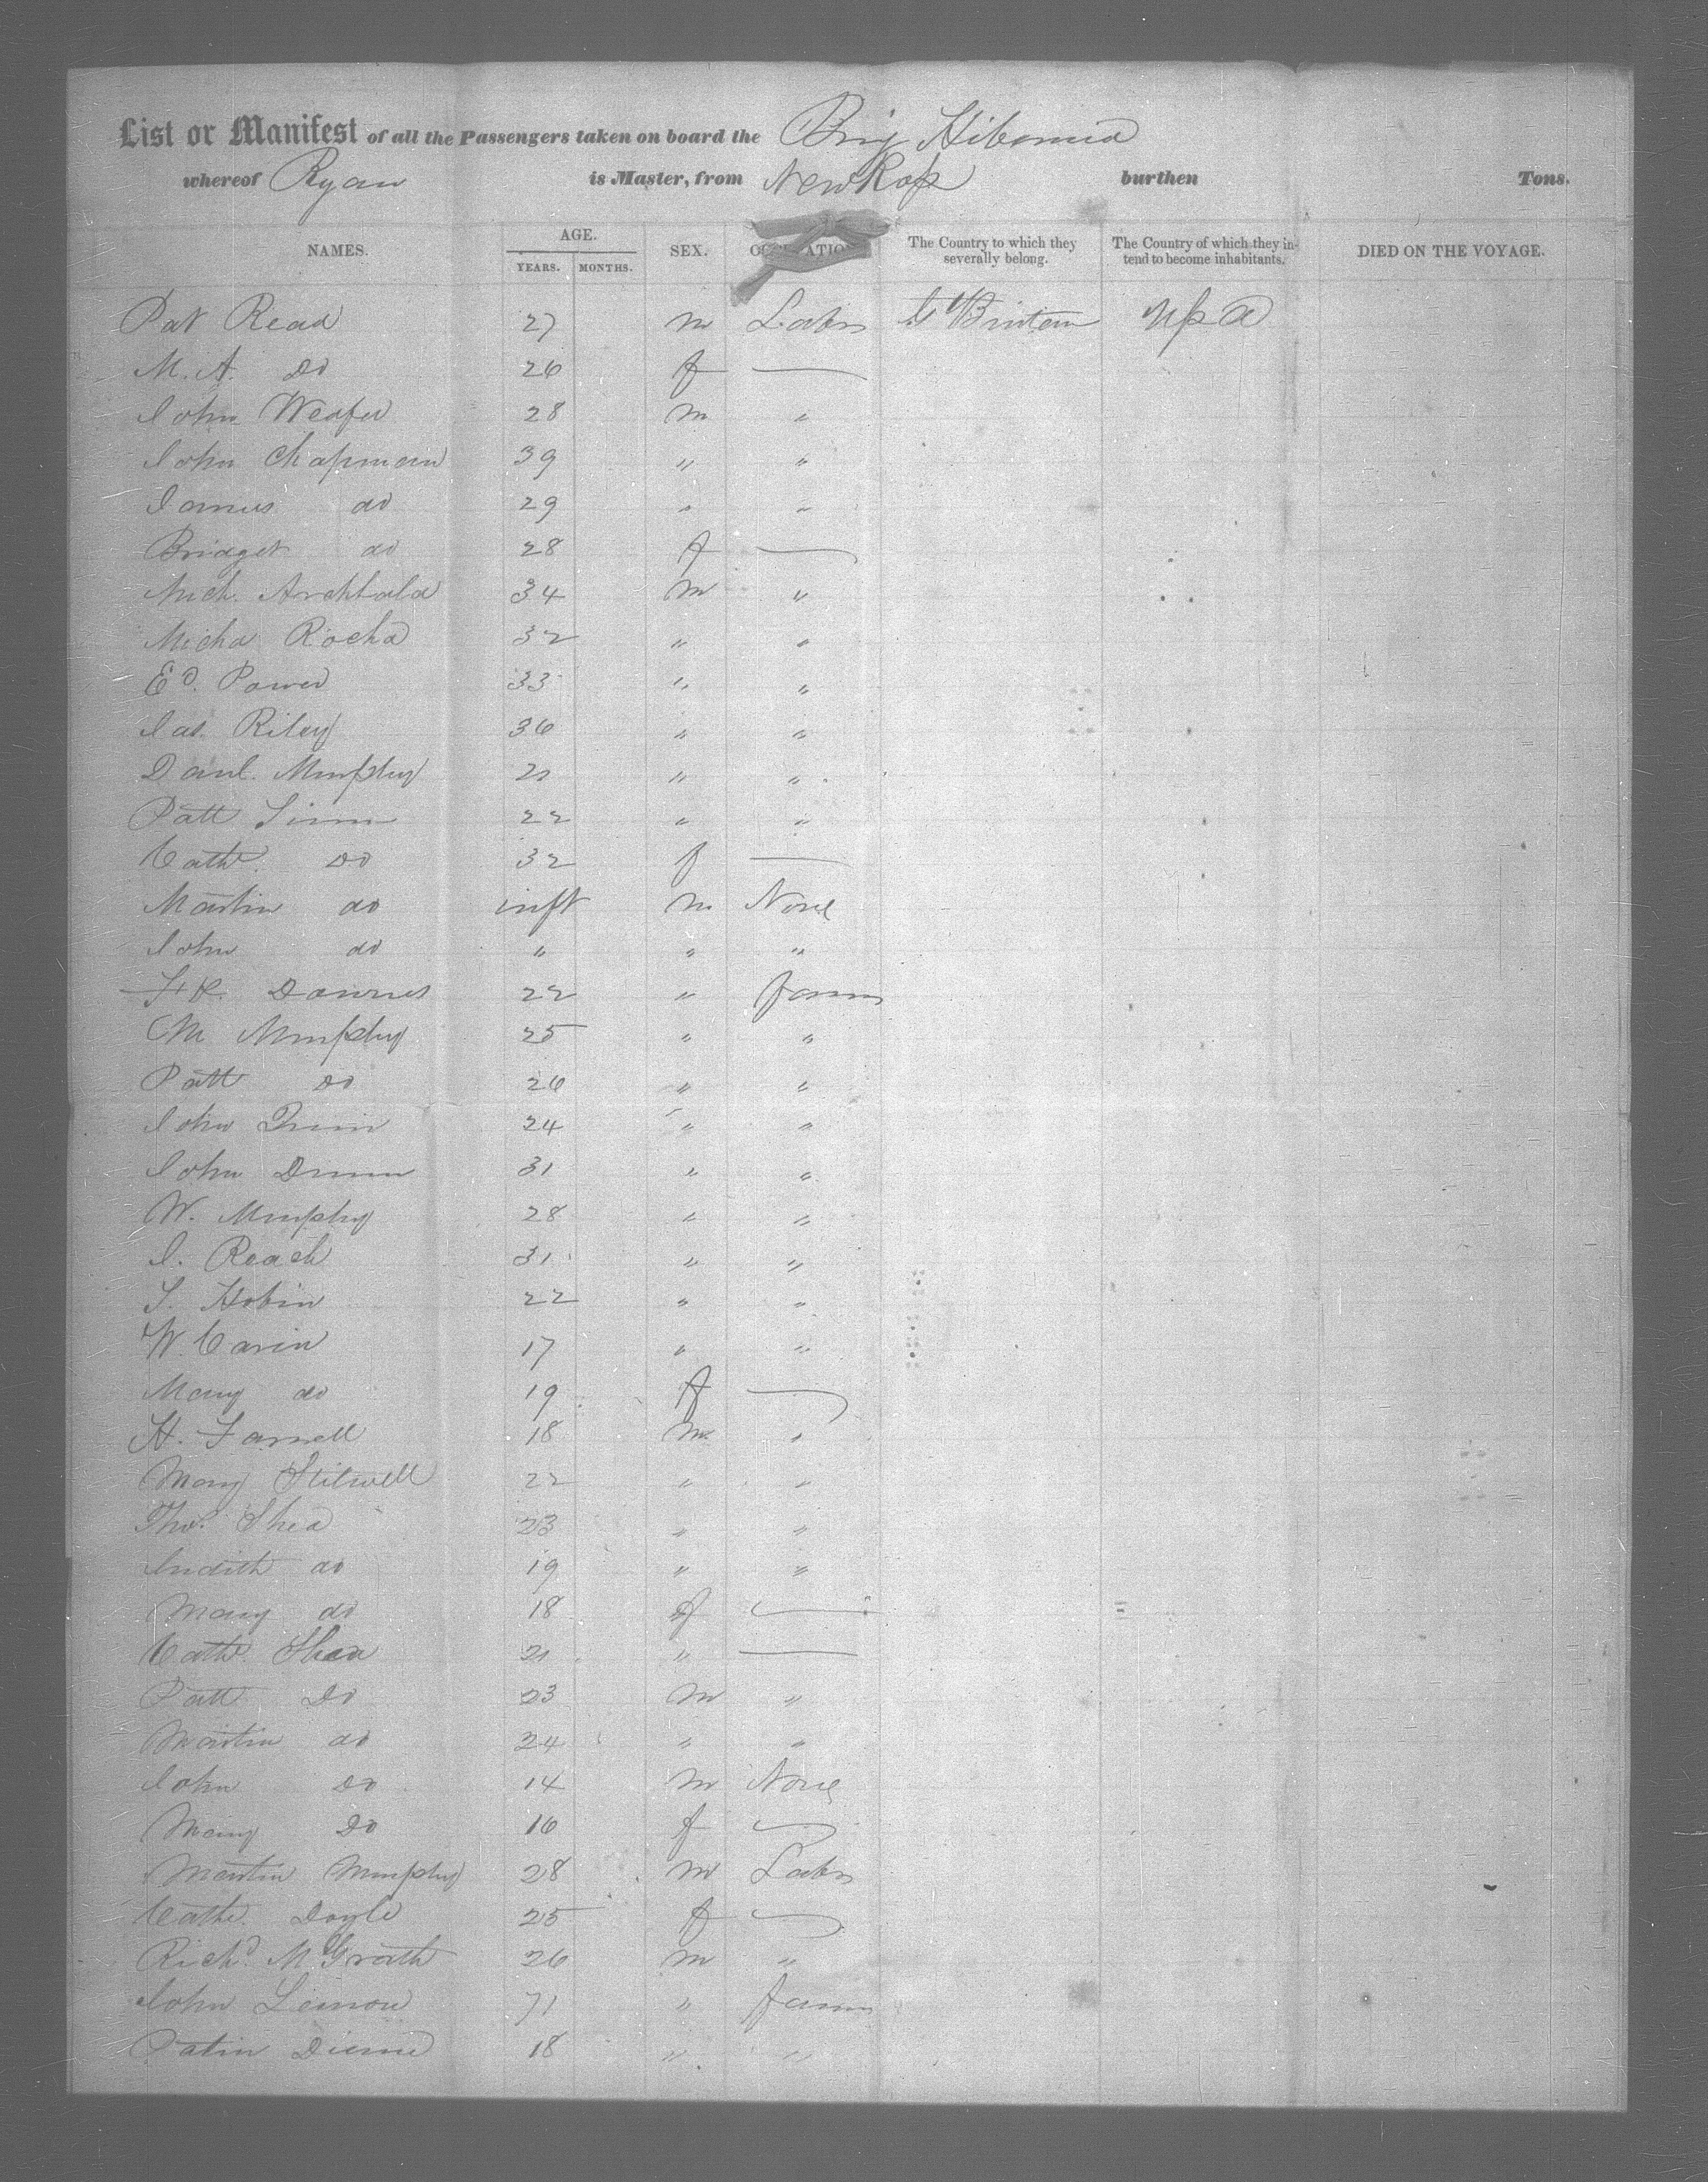 List or Manifest of all the Passengers taken on board the Brig Hibernia
whereof Ryan is Master, from New Ross burthen Tons.
NAMES. AGE. YEARS. MONTHS. SEX. OCCUPATION The Country to which they severally belong. The Country of which they intend to become inhabitants. DIED ON THE VOYAGE.
Pat Read 27 m Labr Gt Britain USA
M. A. Do 26 f —
John Weafer 28 m "
John Chapman 39 " "
James do 29 " "
Bridget do 28 f —
Mich. Archbald 34 m "
Micha Rocha 32 " "
Ed. Power 33 " "
Jas. Riley 36 " "
Danl. Murphy 21 " "
Patt 22 " "
Cathe. Do 32 f —
Martin do inft m None
John do " " "
Downes 22 " farmr
M Murphy 25 " "
Patt Do 26 " "
John Quin 24 " "
John Dunn 31 " "
W. Murphy 28 " "
J. Roach 31 " "
Hobin 22 " "
W. Carin 17 " "
Mary do 19 f —
H. Farrell 18 m "
Mary Stilwell 22 " "
Thos. Shea 23 " "
Judith do 19 " "
Mary do 18 f —
Cathe. Shea 21 " —
Patt Do 23 m "
Martin do 24 " "
John Do 14 m None
Mary Do 16 f —
Martin Murphy 28 m Labr
Cathe. Doyle 25 f —
Richd. McGrath 26 m "
John Lemon 71 " farmr
18 " "